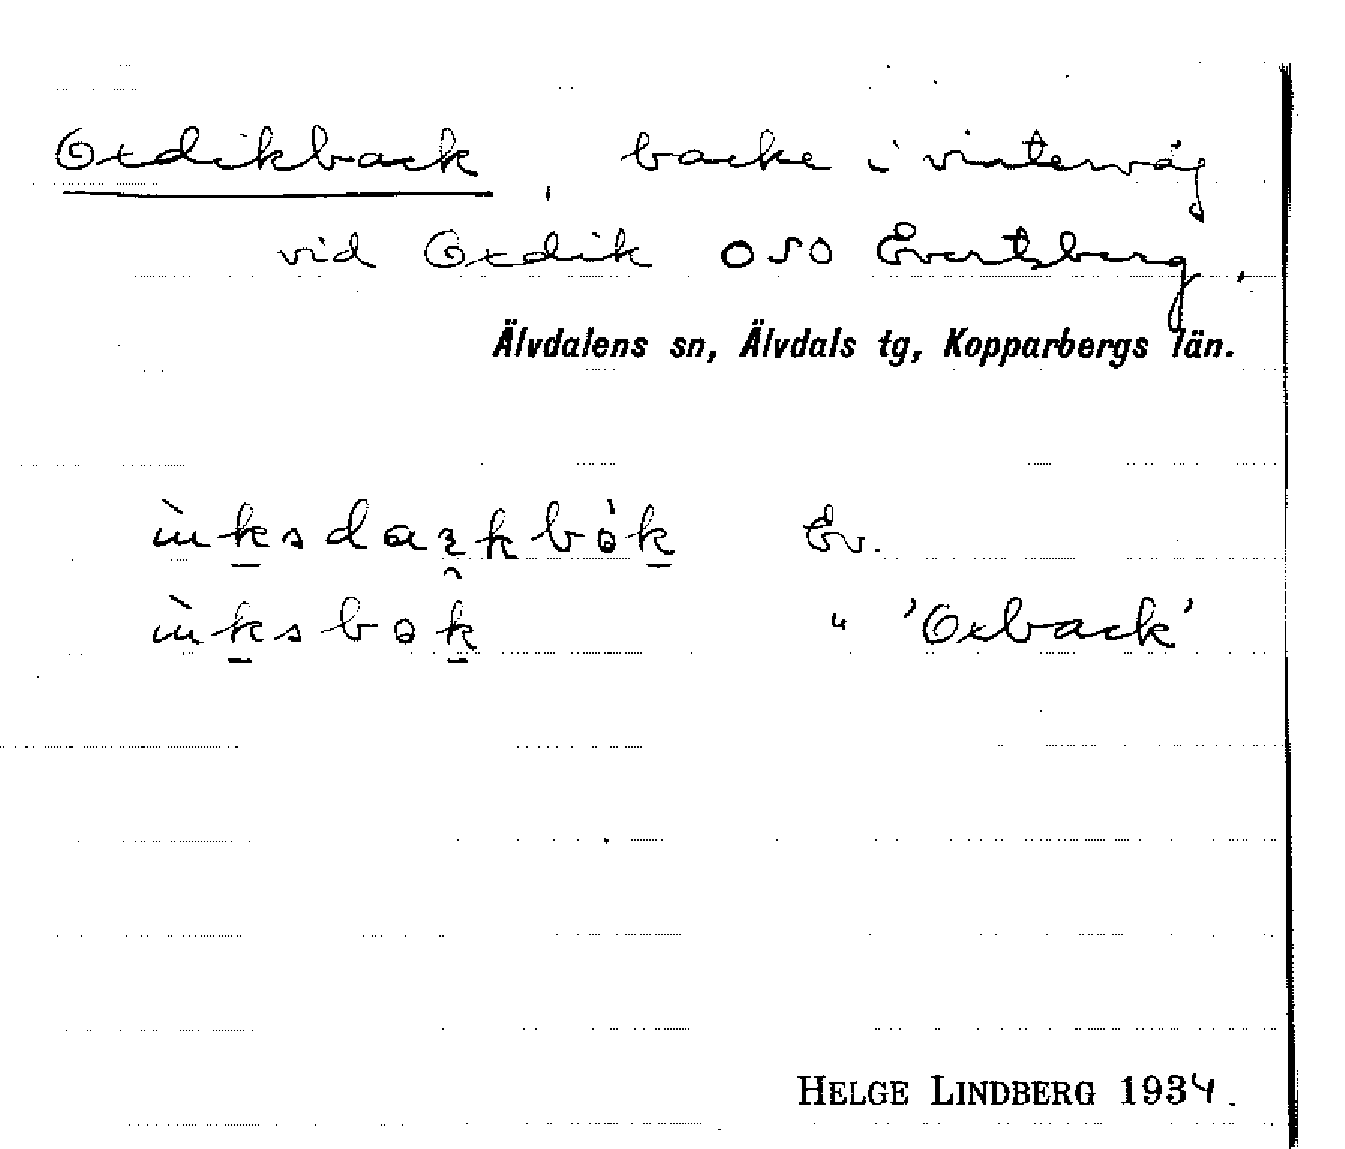 Oxdikback, backe i vinterväg
vid Oxdik OSO Evertsberg.
Älvdalens sn, Älvdals tg, Kopparbergs län.
Ev.
" 'Oxback'
HELGE LINDBERG 1934.